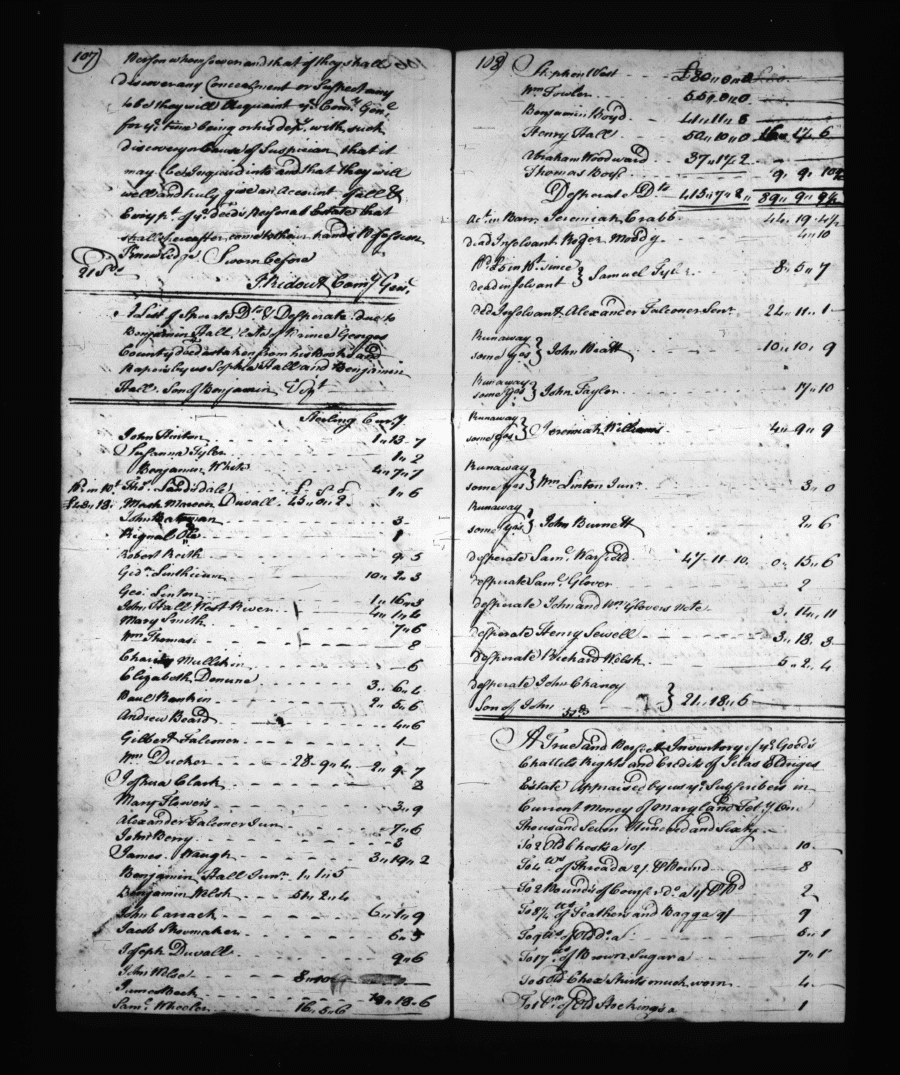 107
Person whomsoever and that if they shall
discover any Concealment or Suspect any
to be they will Acquaint ye Comy Genl
for ye time being or his Depy with such
discovery or Cause of Suspicion, that it
may be Inquired into and that they will
well and truly give an Account of all &
Every pt of ye decds Personal Estate that
shall hereafter come to their hands Possession
or knowledge Sworn before
21 Sds
J. Ridout Comy Genl
A List of Sperate Dts & Desperate due to
Benjamin Hall late of Prince Georges
County decd as taken from his Books and
Papers by us Sophia Hall and Benjamin
Hall Son of Benjamin Expt
Sterling Curry
John Anton 1 " 13 " 7
Susanna Tyler 1 " 2
Benjamin White 4 " 7 " 7
Thos Sandsdale £ S d 1 " 6
£43 " 18 Mark Mareen Duvall 45 " 0 " 2
John Bateman 3
Rignal Odle 1
Robert Reith 9 " 5
Geo. Linthicum 10 " 2 " 3
Geo: Linton 1 " 16 " 3
John Hall West River 4 " 1 " 4
Mary Smith 7 " 6
Wm Thomas 8
Charity Mullikin 6
Elizabeth Denune 3 " 6 " 4
Paul Rankin 2 " 5 " 6
Andrew Beard 4 " 6
Gilbert Falconer 1
Wm Ducker 28 " 9 " 4 2 " 9 " 7
Joshua Clark 2
Mary Flowers 3 " 9
Alexander Falconer Junr 7 " 6
John Berry 8
James Waugh 3 " 19 " 2
Benjamin Hall Junr 1 " 1 " 5
Benjamin Welsh 51 " 2 " 4
John Carrack 6 " 1 " 9
Jacob Shoemaker 6 " 5
Joseph Duvall 9 " 6
John Wilse 8 " 10
James Beck 18 " 6
Saml Wheeler 16 " 5 " 6
108
Stephen West £80 " 0 " 0
Wm Fowler 559 " 0 " 0
Benjamin Boyd 41 " 11 " 5
Henry Hall 50 " 10 " 0 16 " 17 " 6
Abraham Woodward 37 " 17 " 2
Thomas Boyd 9 " 9 " 10½
Desperate Dts 413 " 7 " 2 89 " 9 " 9½
Act in Barr. Jeremiah Crabb 44 " 19 " 4½
dead Insolvant Roger Moody 4 " 10
dead insolvant } Samuel Tyler 8 " 5 " 7
ded Insolvant Alexander Falconer Senr 22 " 11 " 1
Runaway
some yrs } John Wyatt 10 " 10 " 9
Runaway
some yrs } John Taylor 17 " 10
Runaway
some yrs } Jeremiah Williams 4 " 9 " 9
Runaway
some yrs } Wm Linton Junr 3 " 0
Runaway
some yrs } John Burnett 2 " 6
desperate Saml Warfield 47 " 11 " 10 0 " 15 " 6
desperate Saml Glover 2
desperate John and Wm Glovers note 3 " 14 " 11
desperate Henry Sewell 3 " 18 " 3
desperate Richard Welsh 5 " 2 " 4
desperate John Chaney
Son of John } 21 " 18 " 6
A True and Perfect Inventory of ye Goods
Chattels Rights and Credits of Silas Eldriges
Estate Appraised by us ye Subscribers in
Current Money of Maryland Feby One
Thousand Seven Hundred and Sixty
To 2 Old Chests a 10/ 10
To 4 ws of Threada 2/ & Pound 8
To 2 Pounds of Do a 1/ & Pd 2
To 8¼ of Feathers and Bagga 9/ 9
of Old Do a 5 " 1
To 17 of Brown Sugar a 7 " 1
To 5 Old Chex Shirts much worn 4
To 1 Pr of Old Stockings a 1